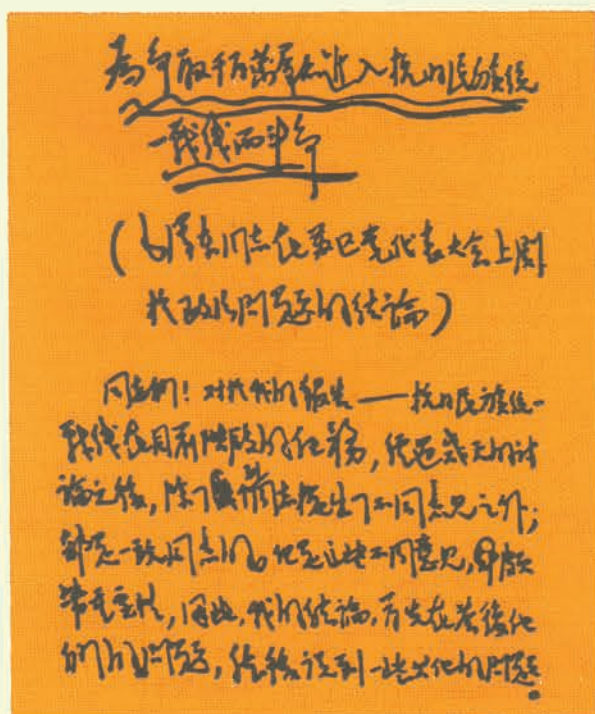 為爭取千百萬羣众进入抗日民族统
一战线而斗争
(毛泽东同志在苏区党代表大会上関
於政治问题的结論)
同志们！对於我的报告——抗日民族统一
战线在目前阶段的任務，经过幾天的讨
論之後，除了同志提出了不同意见之外；
都是一致同意的。但是这些不同意见，却颇
带重要性，因此，我的结論，首先在答復他
们的问题，然後说到一些其他的问题。